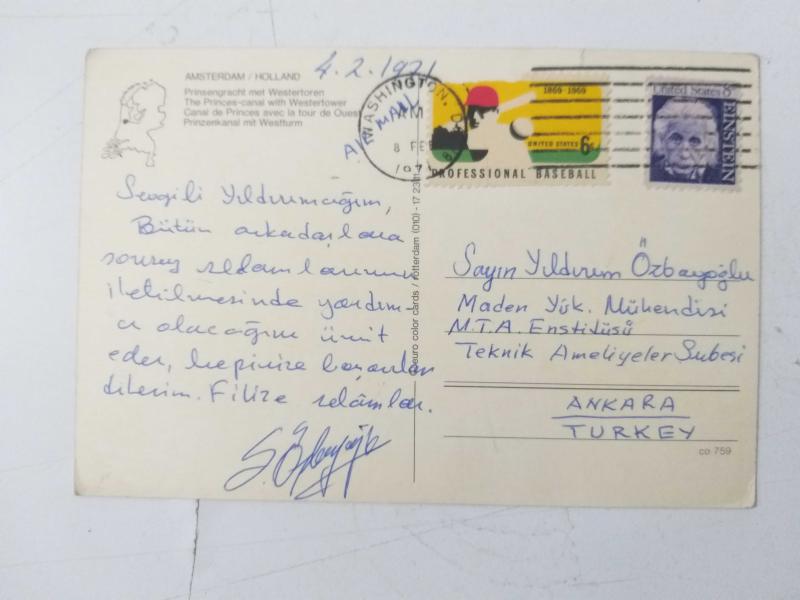 4.2.1971
AMSTERDAM / HOLLAND
Prinsengracht met Westertoren
The Princes-canal with Westertower
Canal de Princes avec la tour de Ouest
Prinzenkanal mit Westturm
AIR MAIL
WASHINGTON, D.
AM
8 FEB
197
1869-1969
UNITED STATES 6c
PROFESSIONAL BASEBALL
United States 8c
EINSTEIN
Sevgili Yıldırımcığım,
Bütün arkadaşlara
sonsuz selamlarımın
iletilmesinde yardım-
cı olacağını ümit
eder, hepinize başarılar
dilerim. Filize selâmlar.
S. Özbayoğlu
euro color cards / rotterdam (010) - 17 23
Sayın Yıldırım Özbayoğlu
Maden Yük. Mühendisi
M.T.A. Enstitüsü
Teknik Ameliyeler Şubesi
ANKARA
TURKEY
co 759